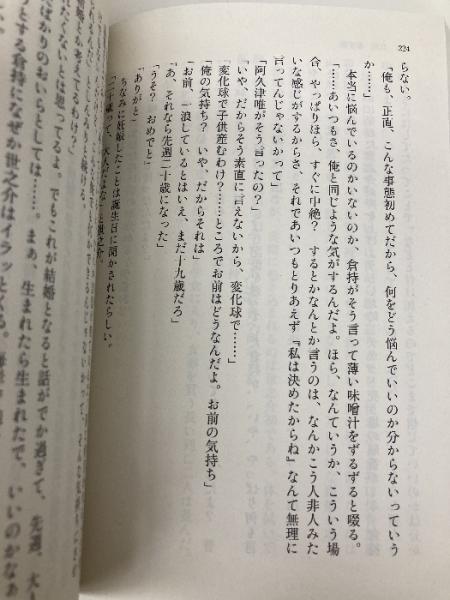 224
らない。
「俺も、正直、こんな事態初めてだから、何をどう悩んでいいのか分からないっていう
か……」
本当に悩んでいるのかいないのか、倉持がそう言って薄い味噌汁をずるずると啜る。
「……あいつもさ、俺と同じような気がするんだよ。ほら、なんていうか、こういう場
合、やっぱりほら、すぐに中絶？　するとかなんとか言うのは、なんかこう人非人みた
いな感じがするからさ、それであいつもとりあえず『私は決めたからね』なんて無理に
言ってんじゃないかって」
「阿久津唯がそう言ったの？」
「いや、だからそう素直に言えないから、変化球で……」
「変化球で子供産むわけ？……ところでお前はどうなんだよ。お前の気持ち」
「俺の気持ち？　いや、だからそれは」
「お前、一浪しているとはいえ、まだ十九歳だろ」
「あ、それなら先週二十歳になった」
「うそ？　おめでと」
「ありがと」
ちなみに妊娠したことは誕生日に聞かされたらしい。
「二十歳って、大人だよな」と世之介。
と思ってるよ。でもこれが結婚となると話がでか過ぎて、先週、大人
ばかりのお
としては……。まあ、生まれたら生まれたで、いいのかなあ
とする倉持になぜか世之介はイラッとくる。